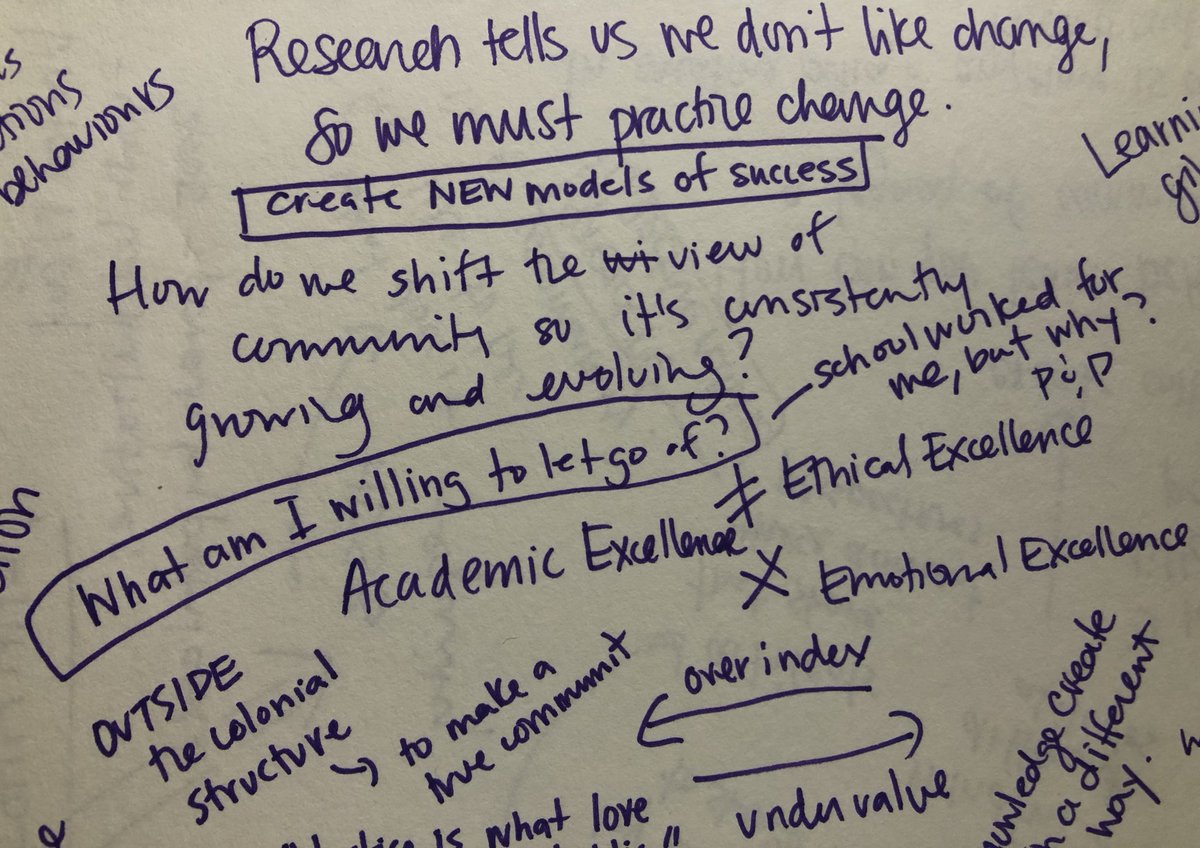 behaviours
Research tells us we don't like change,
so we must practice change.
create NEW models of success
How do we shift the view of
community so it's consistently
growing and evolving?
school worked for
me, but why?
What am I willing to let go of?
≠ Ethical Excellence
Academic Excellence
X Emotional Excellence
OUTSIDE
the colonial
structure
→ to make a
true communit
over index
←
→
undervalue
create
in a different
way.
is what love